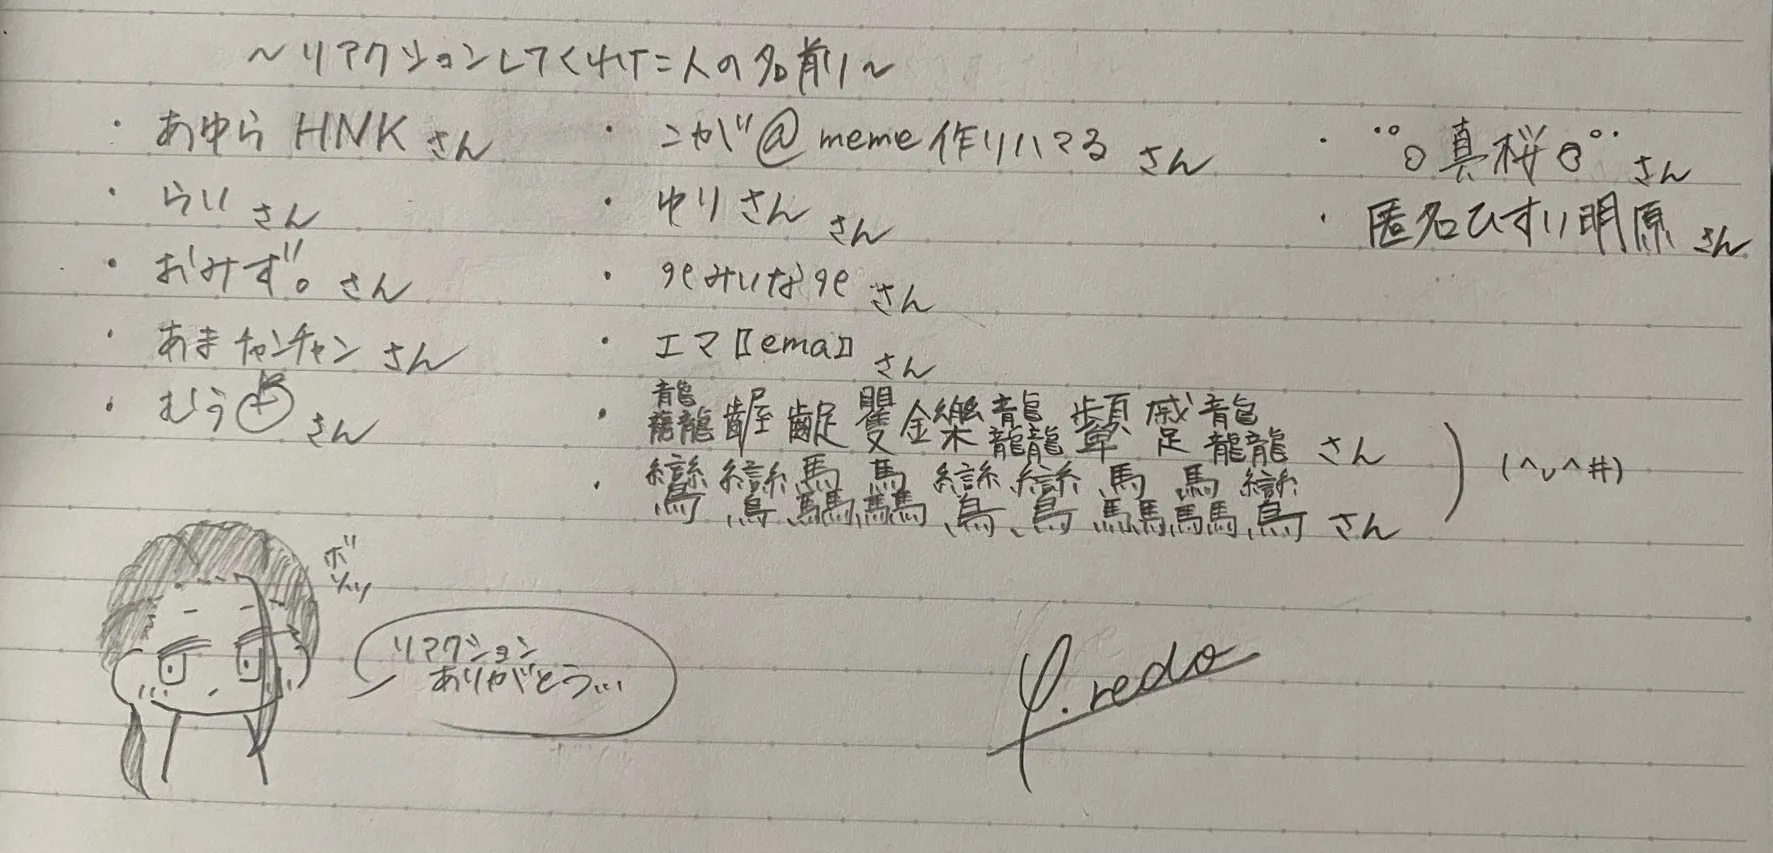 ～リアクションしてくれた人の名前～
・あゆらHNKさん
・らいさん
・おみず。さん
・あまチャンチャンさん
・むう さん
・こが@meme作りハマるさん
・ゆりさんさん
・୨୧みいな୨୧さん
・エマ〚ema〛さん
・龘齷齪矍鑠龘顰蹙龘さん
・鸞鸞驫驫鸞鸞驫驫鸞さん
(^∪^#)
・真桜さん
・匿名ひすい明原さん
ボソッ
リアクション
ありがとう...
y.redo